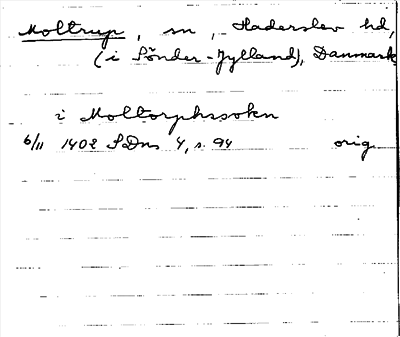 Moltrup, sn, Haderslev hd,
(i Sönder-Jylland), Danmark
i Moltorphssokn
6/11 1402 SDns 4, s. 94 orig.